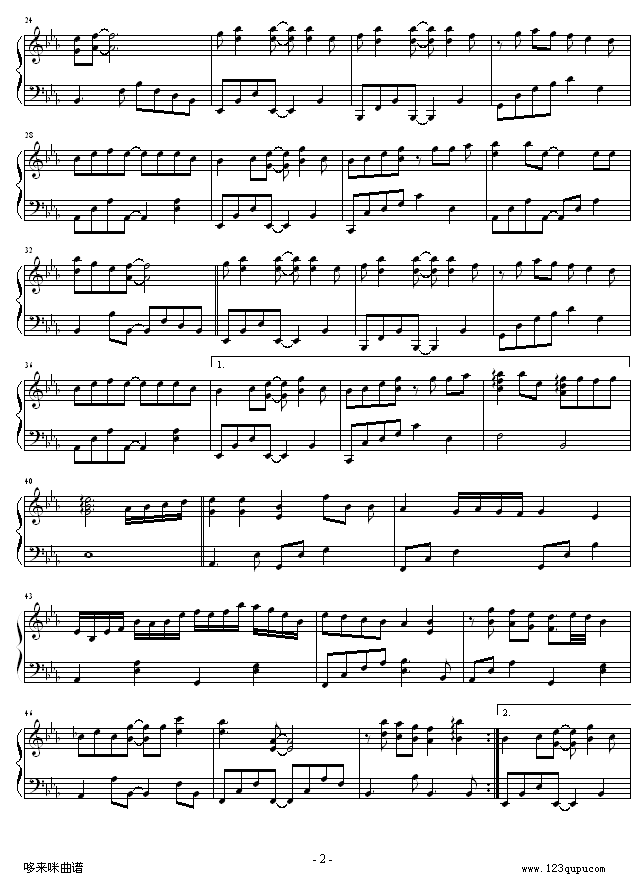 24
28
32
36
1.
40
43
46
2.
- 2 -
哆来咪曲谱
www.123qupu.com